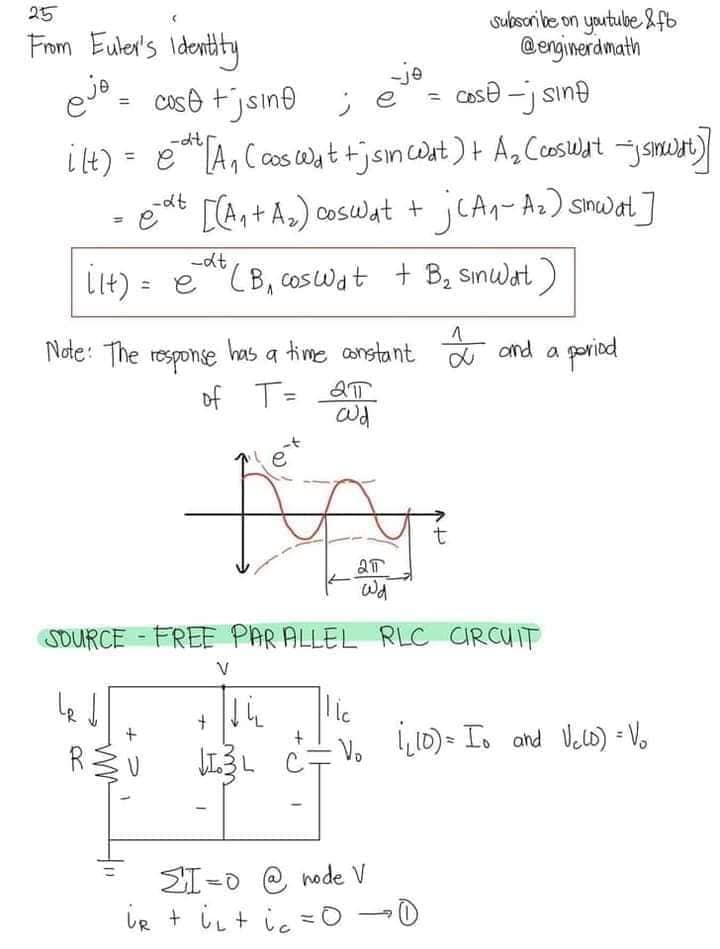 25
subscribe on youtube & fb
@enginerdmath
From Euler's Identity
e^{jθ} = cosθ + jsinθ ; e^{-jθ} = cosθ - j sinθ
i(t) = e^{-αt} [A₁ (cos ωdt + j sin ωdt) + A₂ (cosωdt - j sinωdt)]
= e^{-αt} [(A₁ + A₂) cosωdt + j(A₁ - A₂) sinωdt]
i(t) = e^{-αt} (B₁ cosωdt + B₂ sinωdt)
Note: The response has a time constant 1/α and a period
of T = 2π/ωd
e^{-t}
t
2π/ωd
SOURCE - FREE PARALLEL RLC CIRCUIT
V
iR ↓ ↓ iL | ic
+ + +
R V ↓I₀ L C V₀ iL(0) = I₀ and Vc(0) = V₀
- - -
ΣI = 0 @ node V
iR + iL + ic = 0 → ①